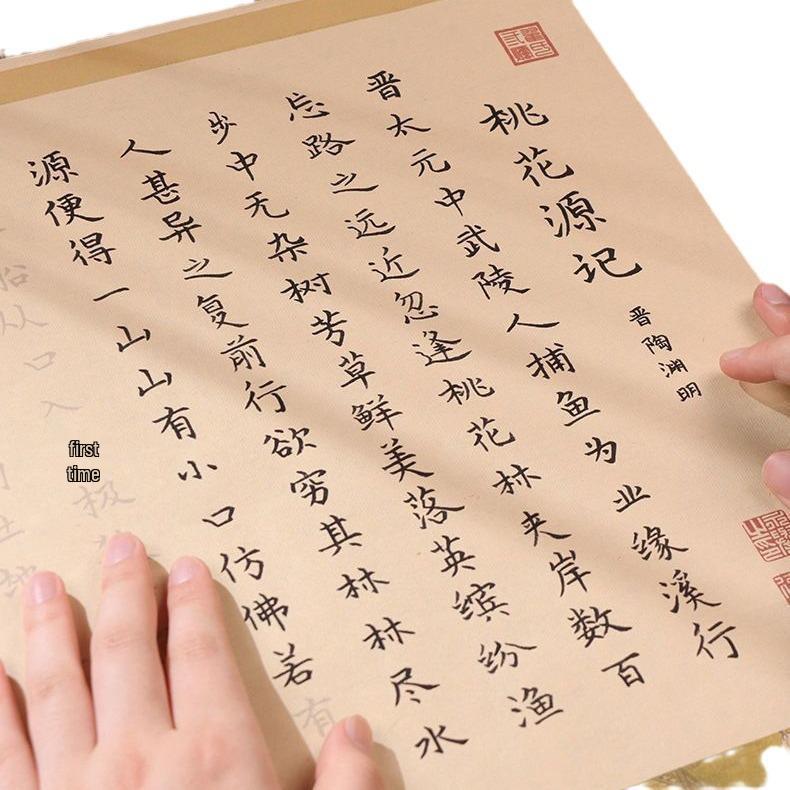 桃花源记
晋陶渊明
晋太元中武陵人捕鱼为业缘溪行
忘路之远近忽逢桃花林夹岸数百
步中无杂树芳草鲜美落英缤纷渔
人甚异之复前行欲穷其林林尽水
源便得一山山有小口仿佛若有
船从口入
极
first
time